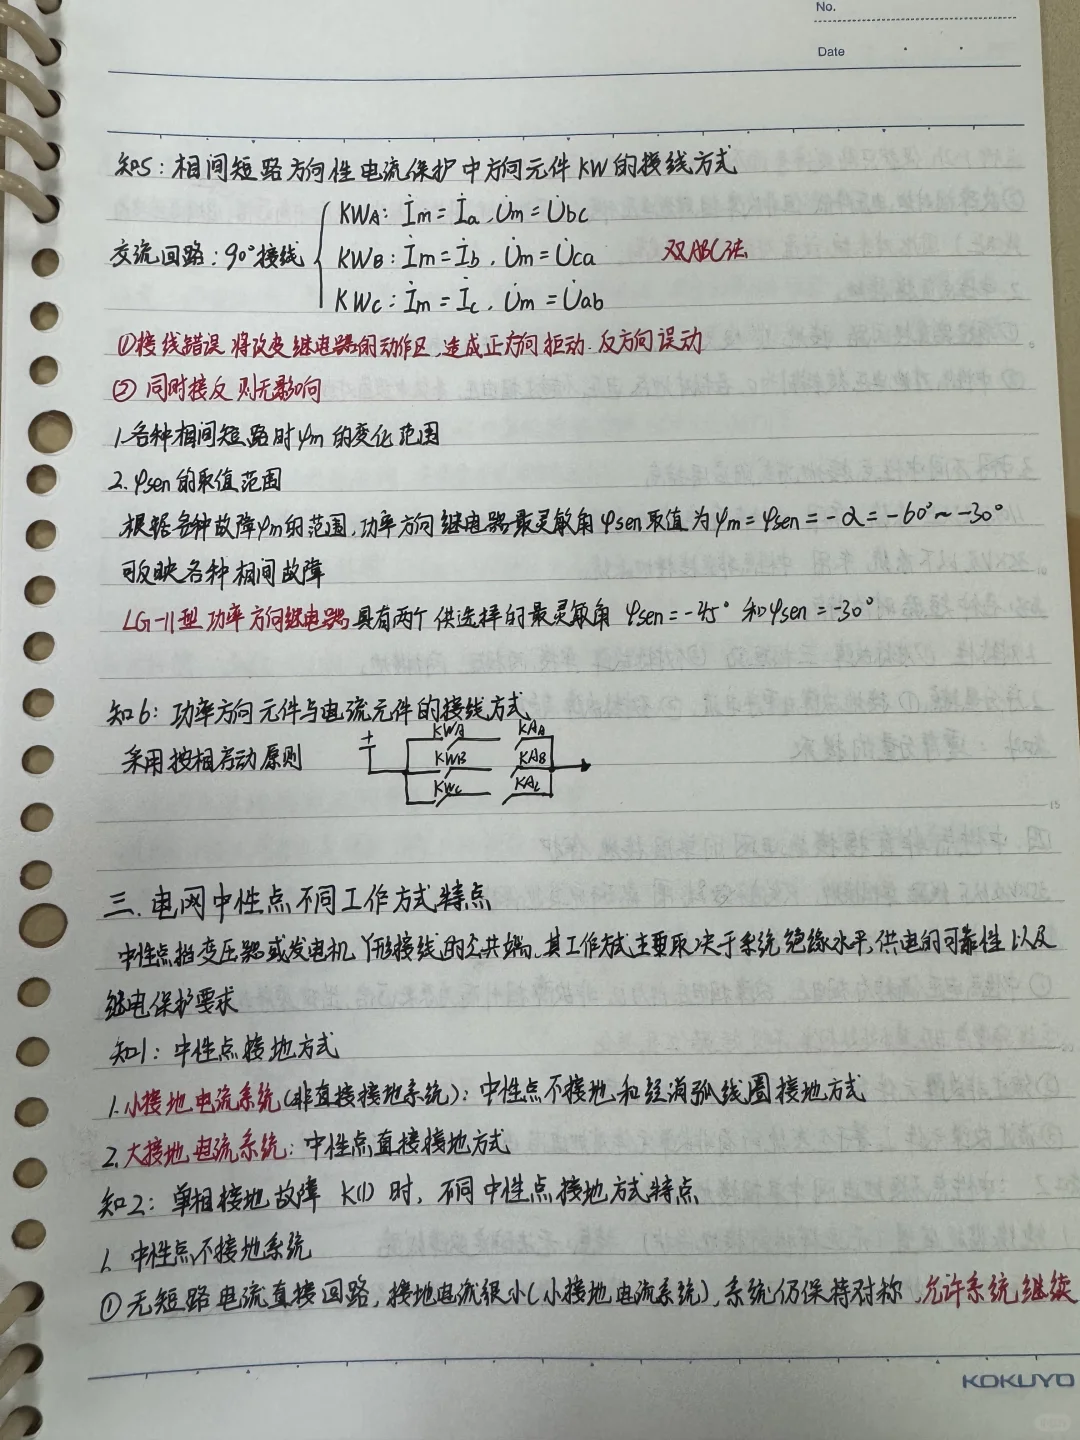 No.
Date
知5：相间短路方向性电流保护中方向元件KW的接线方式
交流回路：90°接线
KWA：İm=İa，U̇m=U̇bc
KWB：İm=İb，U̇m=U̇ca
KWC：İm=İc，U̇m=U̇ab
双ABC法
①接线错误将改变继电器的动作区，造成正方向拒动.反方向误动
②同时接反则无影响
1.各种相间短路时φm的变化范围
2.φsen的取值范围
根据各种故障φm的范围，功率方向继电器最灵敏角φsen取值为φm=φsen=-α=-60°~-30°
可反映各种相间故障
LG-11型功率方向继电器具有两个供选择的最灵敏角 φsen=-45° 和φsen=-30°
知6：功率方向元件与电流元件的接线方式
采用按相启动原则
+
KWA KAA
KWB KAB
KWC KAC
三.电网中性点不同工作方式特点
中性点指变压器或发电机Y形接线的公共端，其工作方式主要取决于系统绝缘水平，供电的可靠性以及
继电保护要求
知1：中性点接地方式
1.小接地电流系统(非直接接地系统)：中性点不接地和经消弧线圈接地方式
2.大接地电流系统：中性点直接接地方式
知2：单相接地故障 K(1)时，不同中性点接地方式特点
1.中性点不接地系统
①无短路电流直接回路，接地电流很小(小接地电流系统)，系统仍保持对称，允许系统继续
KOKUYO
15